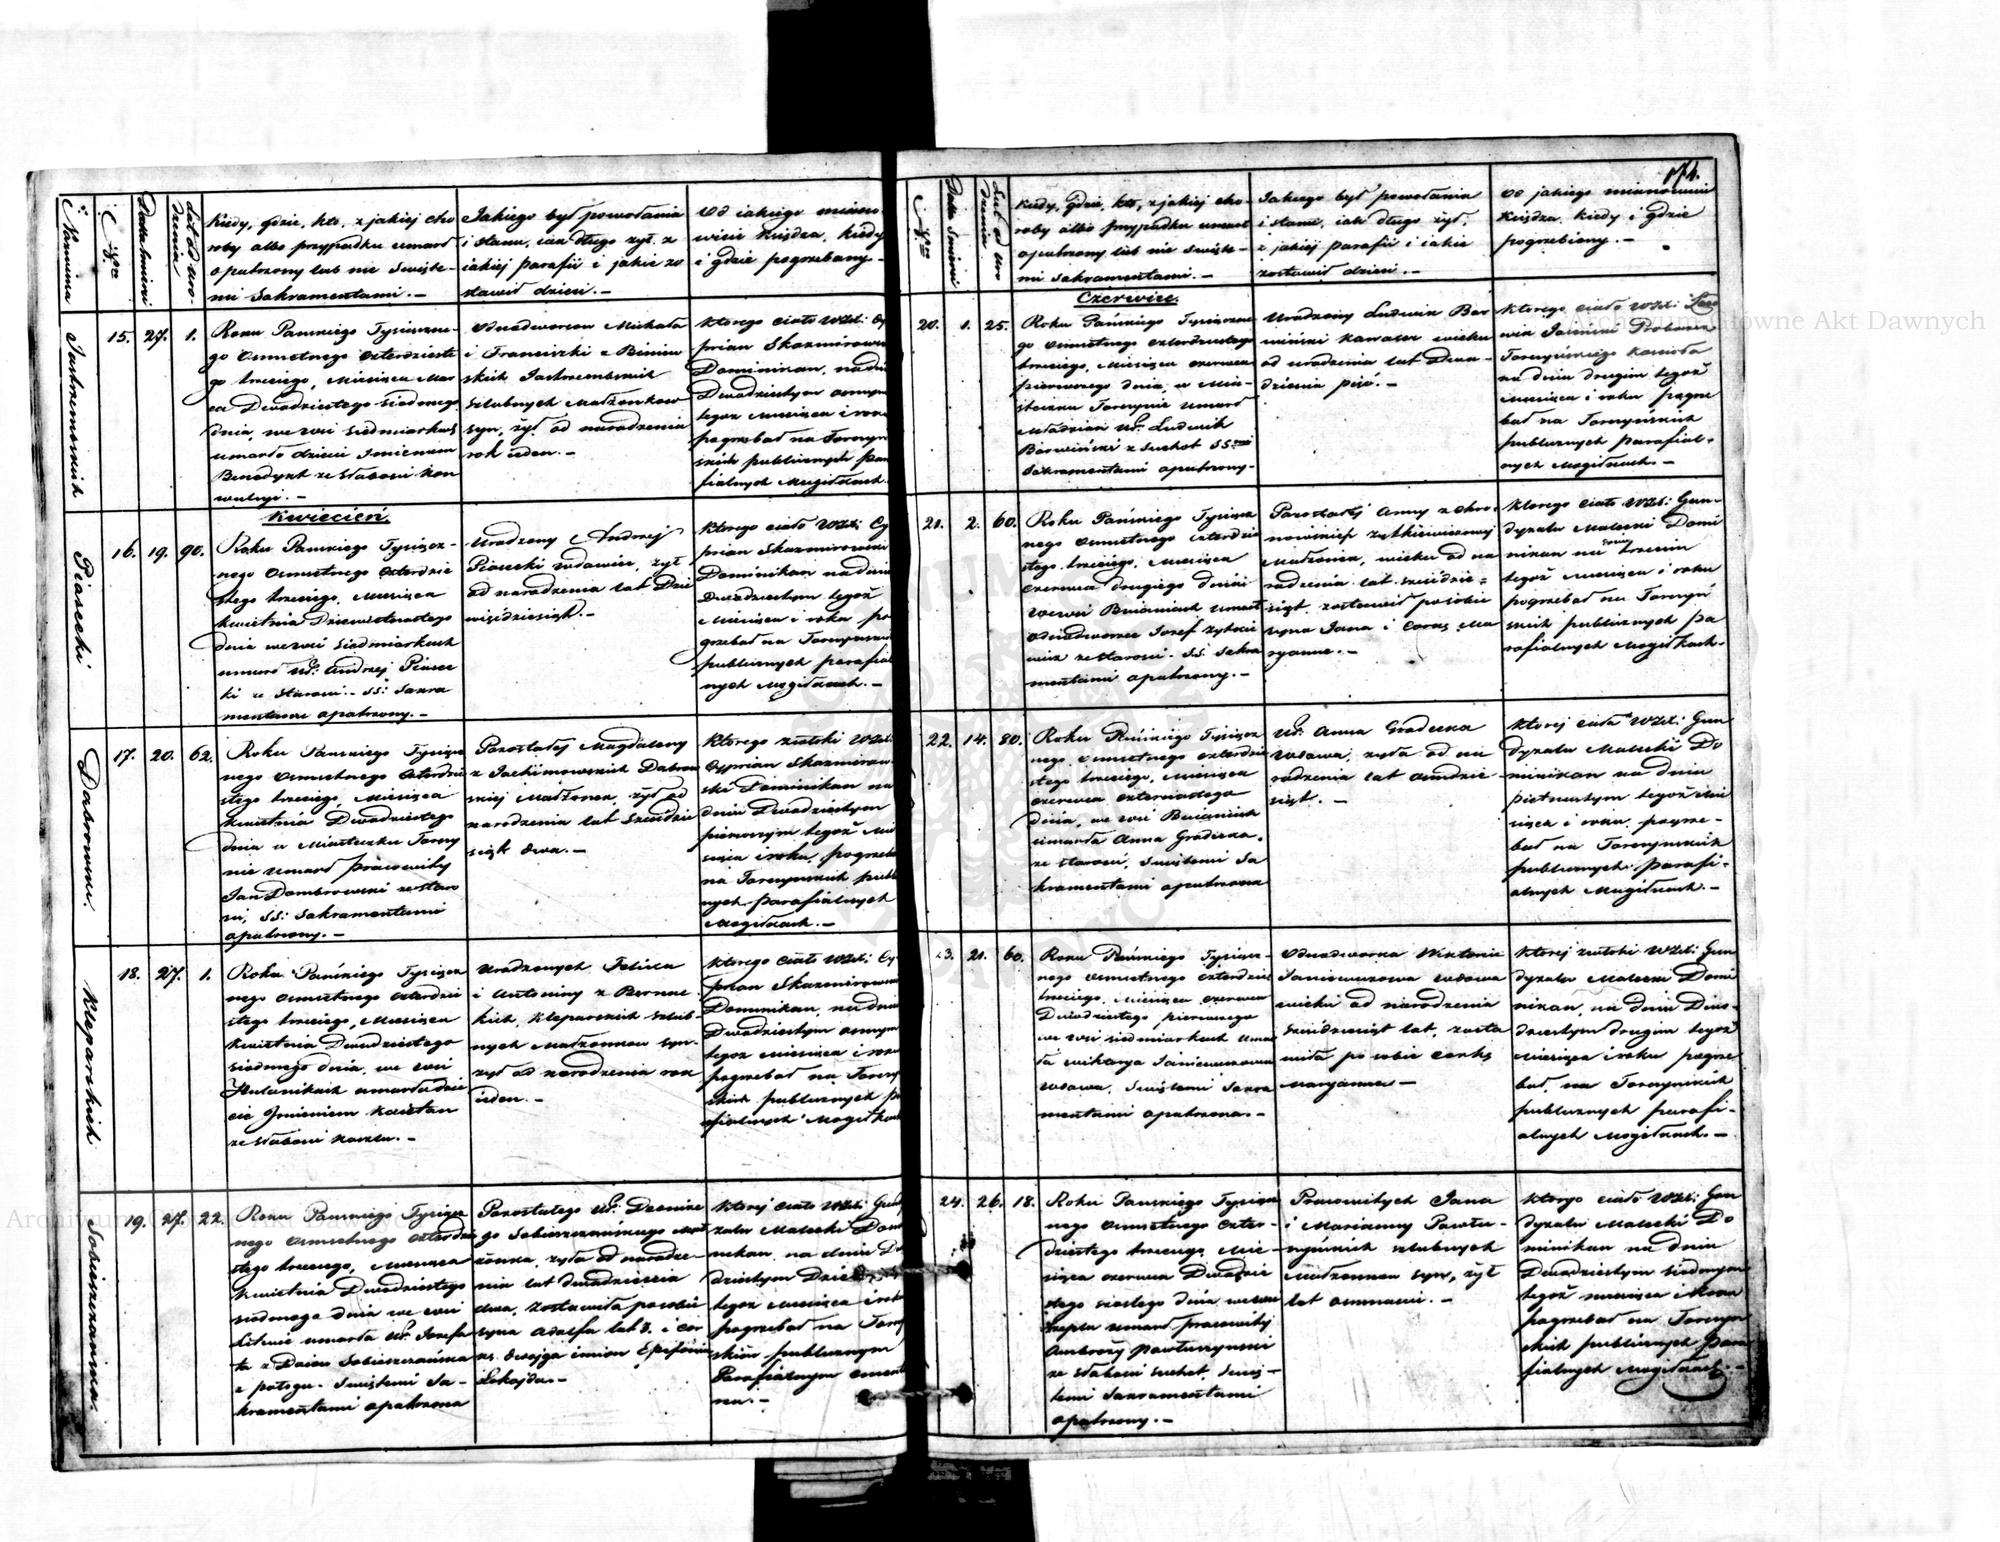 174.
Kiedy, gdzie, kto, z jakiej cho
roby albo przypadku umarł
opatrzony lub nie Święte-
mi Sakramentami. —
Jakiego był powołania
i stanu, jak długo żył, z
jakiej parafii i jakie zo
stawił dzieci. —
Od jakiego miano-
wicie Księdza, kiedy
i gdzie pogrzebany —
Jastrzembskich
15. 27. 1.
Roku Pańskiego Tysiączne-
go osmsetnego czterdzieste
go trzeciego, Miesiąca Mar
ca Dwudziestego siódmego
dnia, we wsi Siedmiarkach
umarło dziecie Imieniem
Benedykt ze słabości kon
wulsyi. —
Odnodworców Michała
i Franciszki z Binień
skich Jastrzembskich
szlubnych Małżonków
syn, żył od narodzenia
rok jeden. —
Którego ciało WXd: Cy
prian Skazmirowski
Dominikan, na dniu
Dwudziestym osmym
tegoż Miesiąca i roku
pogrzebał na Torczyn
skich publicznych para
fialnych Mogiłkach.
Kwiecień.
Piasecki
16. 19. 90.
Roku Pańskiego Tysiącz-
nego osmsetnego Czterdzie
stego trzeciego, Miesiąca
Kwietnia Dziewiętnastego
dnia we wsi Siedmiarkach
umarł Ur. Andrzej Piasec
ki ze starości. SS: Sakra
mentami opatrzony. —
Urodzony Andrzej
Piasecki wdowiec, żył
od narodzenia lat Dzie
więćdziesiąt. —
Którego ciało WXd: Cy
prian Skazmirowski
Dominikan na dniu
Dwudziestym tegoż
Miesiąca i roku po
grzebał na Torczynskich
publicznych parafial
nych Mogiłkach. —
Dąbrowski.
17. 20. 62.
Roku Pańskiego Tysiącz
nego osmsetnego Czterdzie
stego trzeciego, Miesiąca
Kwietnia Dwudziestego
dnia w Miasteczku Torczy
nie umarł pracowity
Jan Dombrowski ze staro
ści, SS: Sakramentami
opatrzony. —
Pozostałej Magdaleny
z Jachimowskich Dabrow
skiej Małżonek, żył od
narodzenia lat Sześćdzie
siąt dwa. —
Którego zwłoki WXd:
Cyprian Skazmirow-
ski Dominikan na
dniu Dwudziestym
pierwszym tegoż Mie
siąca i roku, pogrzebał
na Torczynskich publi
nych parafialnych
Mogiłkach. —
Kleparskich
18. 27. 1.
Roku Pańskiego Tysiącz
nego osmsetnego czterdzie
stego trzeciego, Miesiąca
Kwietnia Dwudziestego
siódmego dnia, we wsi
umarło dzie
cie Imieniem Kajetan
ze słabości kaszlu. —
Urodzonych Felixa
i Antoniny z Bernac
kich, Kleparskich szlub-
nych Małżonków syn-
żył od narodzenia rok
jeden. —
Którego ciało WXd: Cy-
prian Skazmirowski
Dominikan, na dniu
Dwudziestym osmym
tegoż Miesiąca i roku
pogrzebał na Torczyn
skich publicznych pa
rafialnych Mogiłkach
Sobieszczanska.
19. 27. 22.
Roku Pańskiego Tysiącz
nego osmsetnego czterdzie
stego trzeciego, Miesiąca
Kwietnia Dwudziestego
siódmego dnia we wsi
umarła Ur. Józefa
ta z Sobieszczańska
z połogu. Świętemi Sa-
kramentami opatrzona
Pozostałego Ur.
go Sobieszczańskiego Mał
żonka, żyła od narodze-
nia lat dwadzieścia
dwa, zostawiła po sobie
syna Adolfa lat 3. i cór
kę dwojga imion Epifanią
Której ciało WXd: Gun
zalw Małecki Domi
nikan, na dniu Dwu
dziestym
tegoż Miesiąca i roku
pogrzebał na Torczyn
skim publicznym
Parafialnym cmenta
rzu. —
Kiedy, gdzie, kto, z jakiej cho-
roby albo przypadku umarł
opatrzony lub nie Święte-
mi Sakramentami. —
Jakiego był powołania
i stanu, jak długo żył,
z jakiej parafii i jakie
zostawił dzieci. —
Od jakiego mianowicie
Księdza, kiedy i gdzie
pogrzebiony. —
Czerwiec.
20. 1. 25.
Roku Pańskiego Tysiączne
go osmsetnego czterdziestego
trzeciego, Miesiąca czerwca
pierwszego dnia, w Mia-
steczku Torczynie umarł
Młodzian Ur. Ludwik
Barwiński z suchot SS-mi
Sakramentami opatrzony-
Urodzony Ludwik Bar
wiński Kawaler wieku
od urodzenia lat Dwa-
dzieścia pięć. —
Którego ciało WXd:
Proboszcz
Torczyńskiego Kościoła
na dniu drugim tegoż
Miesiąca i roku, pogrze
bał na Torczyńskich
publicznych parafial-
nych Mogiłkach. —
21. 2. 60.
Roku Pańskiego Tysiącz
nego osmsetnego czterdzie
stego trzeciego, Miesiąca
czerwca drugiego dnia
we wsi Buianiach umarł
odnodworzec Jozef Zytkie
wicz ze starości. SS. Sakra
mentami opatrzony. —
Pozostałej Anny z Chro-
nowskich Zytkiewiczowej
Małżonek, wieku od na
rodzenia lat sześćdzie=
siąt, zostawił po sobie
syna Jana i córkę Ma
ryannę. —
Którego ciało WXd: Gun-
dyzalw Małecki Domi
nikan na dniu trzecim
tegoż Miesiąca i roku
pogrzebał na Torczyń
skich publicznych pa
rafialnych Mogiłkach.
22. 14. 80.
Roku Pańskiego Tysiącz
nego osmsetnego czterdzie
stego trzeciego, Miesiąca
czerwca czternastego
dnia, we wsi Buianiach
umarła Anna Gradecka,
ze starości, Świętemi Sa
kramentami opatrzona
Ur. Anna Gradecka
wdowa, żyła od na
rodzenia lat osmdzie-
siąt. —
Której ciało WXd: Gun
dyzalw Małecki Do
minikan na dniu
piętnastym tegoż Mie
siąca i roku, pogrze-
bał na Torczynskich
publicznych parafi-
alnych Mogiłkach. —
23. 21. 60.
Roku Pańskiego Tysiącz-
nego osmsetnego czterdzie
trzeciego, Miesiąca czerwca
Dwudziestego pierwszego
we wsi Siedmiarkach umar
ła Wiktorya Janiewiczowa
wdowa, Świętemi Sakra
mentami opatrzona. —
Odnodworka Wiktoria
Janiewiczowa wdowa
wieku od narodzenia
sześćdziesiąt lat, zosta
wiła po sobie córkę
Maryannę —
Której zwłoki WXd: Gun
dyzalw Małecki Domi
nikan, na dniu Dwu-
dziestym drugim tegoż
Miesiąca i roku pogrze
bał, na Torczynskich
publicznych parafi-
alnych Mogiłkach. —
24. 26. 18.
Roku Pańskiego Tysiącz
nego osmsetnego czter-
dziestego trzeciego, Mie-
siąca czerwca Dwudzie
stego szóstego dnia, we wsi
umarł pracowity
Ambroży Pawłuczynski
ze słabości suchot, Świę-
temi Sakramentami
opatrzony. —
Pracowitych Jana
i Marianny Pawłu-
czyńskich szlubnych
Małżonków syn, żył
lat osmnaście. —
Którego ciało WXd: Gun
dyzalw Małecki Do
minikan na dniu
Dwudziestym siódmym
tegoż miesiąca i Roku
pogrzebał na Torczyn
skich publicznych Para
fialnych Mogiłkach. —
Archiwum Główne Akt Dawnych
Archiwum Główne Akt Dawnych